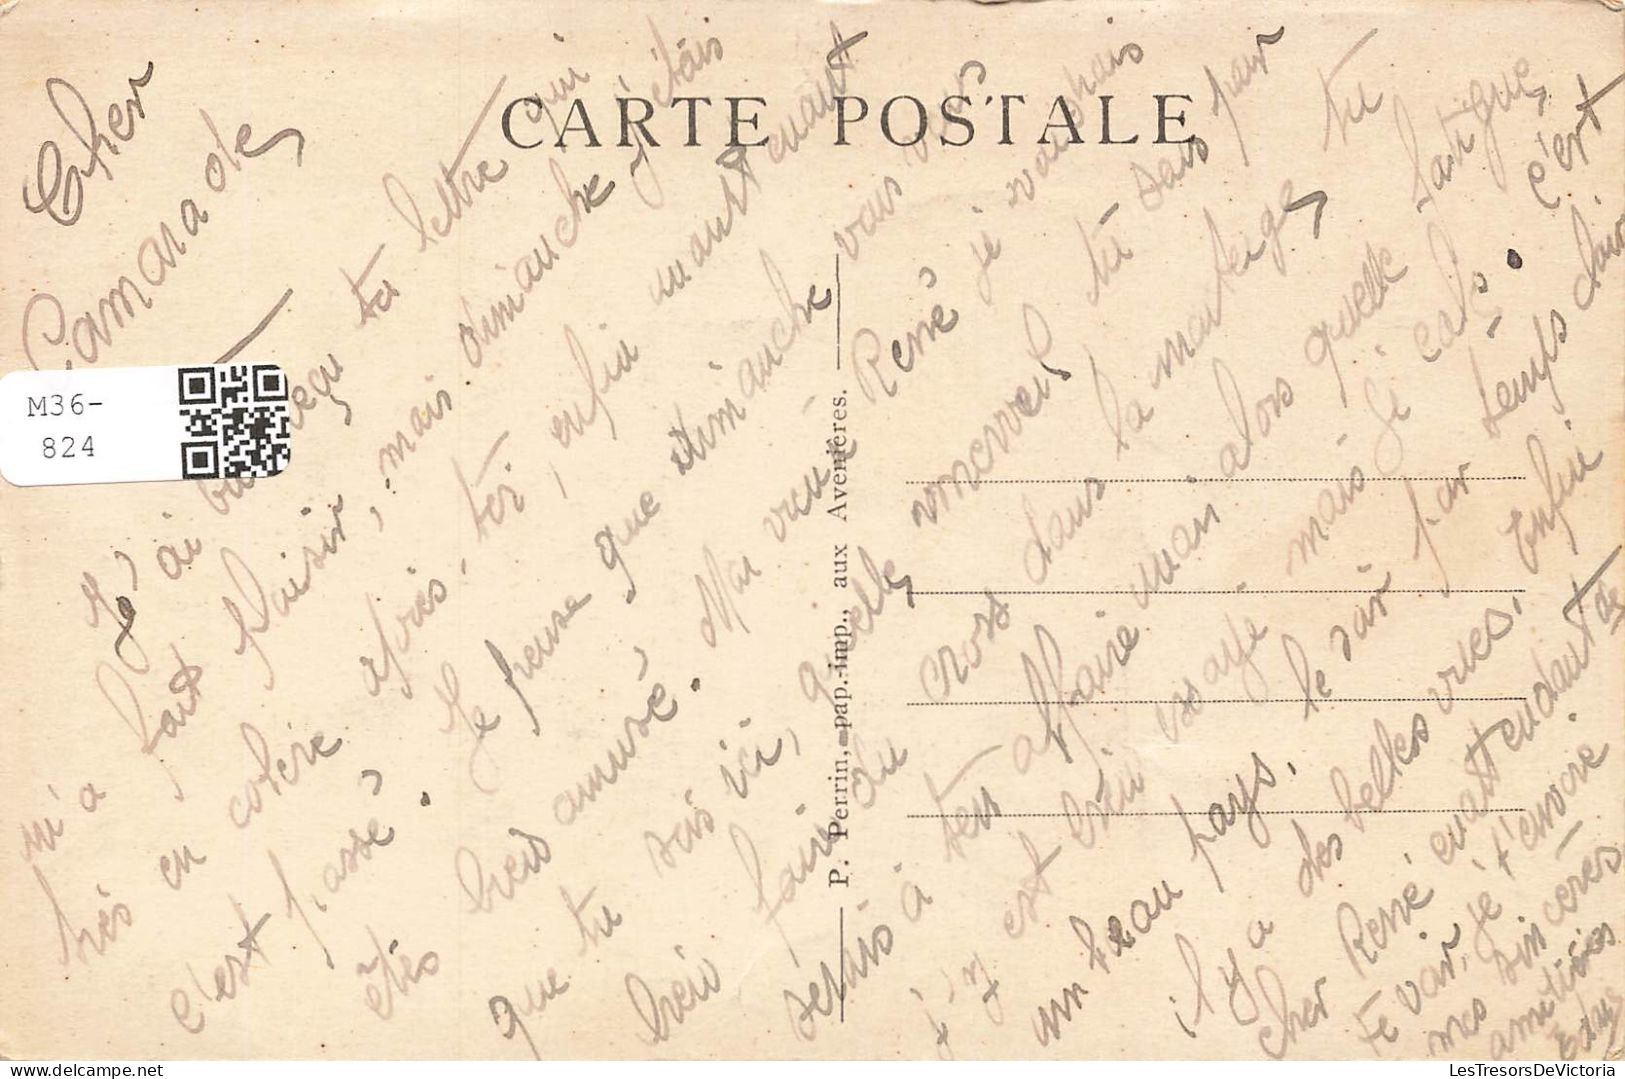 CARTE POSTALE
Cher
Camarade,
J'ai bien reçu ta lettre qui
m'a fait plaisir, mais dimanche j'étais
très en colère après toi, enfin maintenant
c'est passé. Je pense que dimanche vous vous
êtes bien amusé. Mon vieux René je voudrais
que tu sois ici, quelle merveille tu sais pour
bien faire du cross dans la montagne, tu
serais à ton affaire, mais alors quelle fatigue,
j'y ai bien essayé mais j'ai calé. c'est
un beau pays, le soir par temps clair
il y a des belles vues. Enfin
cher René en attendant de
te voir, je t'envoie
mes sincères
amitiés
P. Perrin, pap.-imp., aux Avenières.
M36-
824
LesTresorsDeVictoria